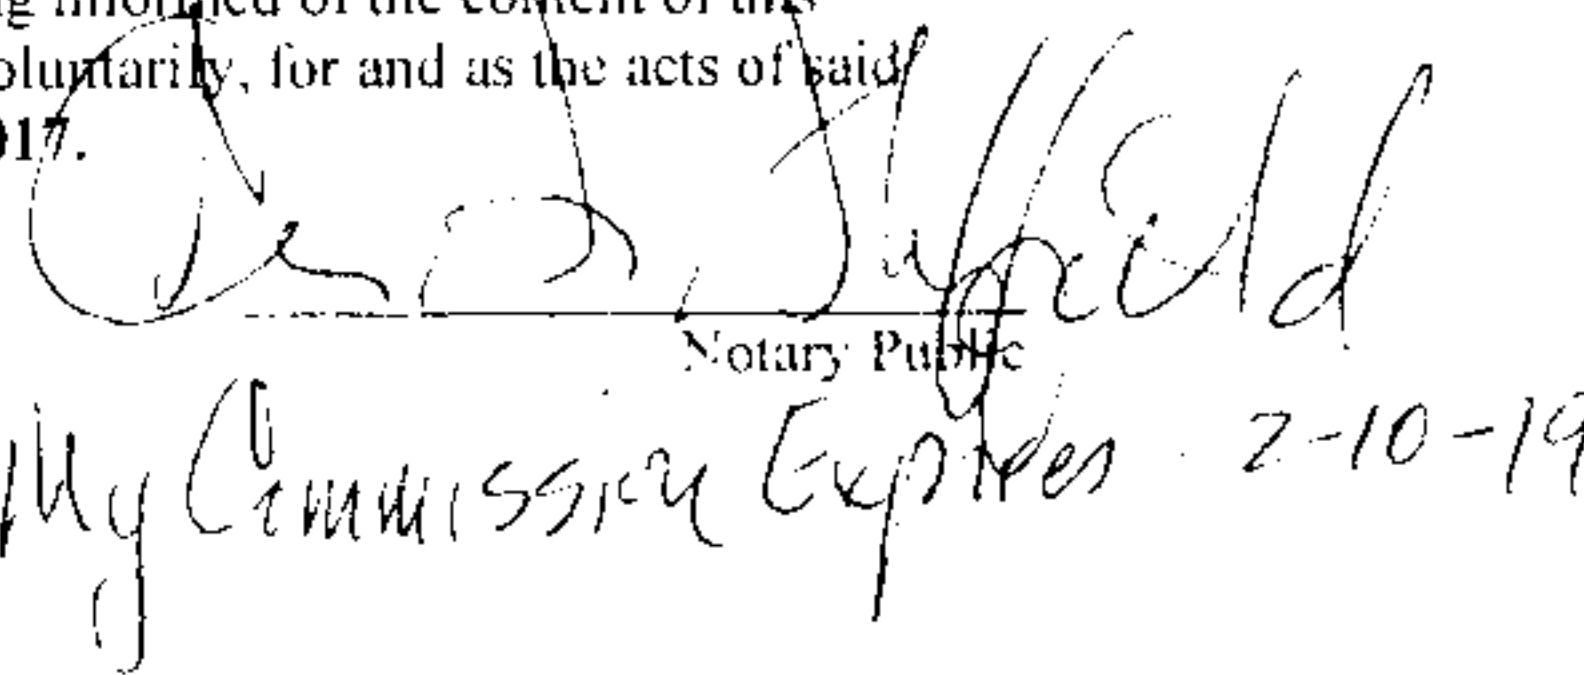 g informed of the content of this
oluntarily, for and as the acts of said
017.
Notary Public
My Commission Expires 2-10-19